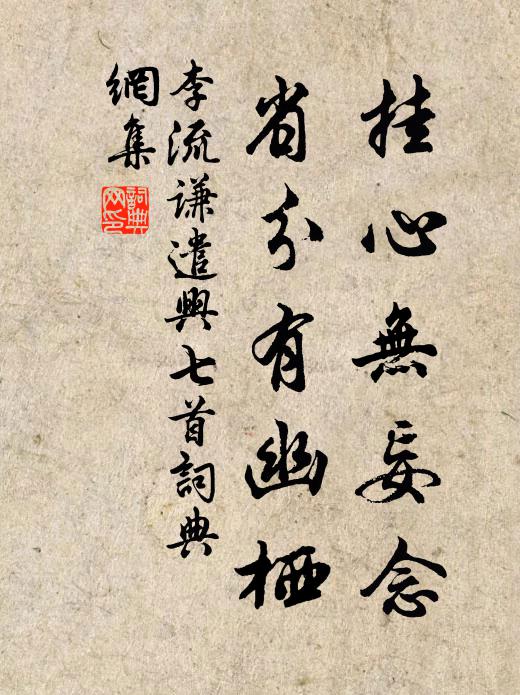 挂心無妄念
省分有幽栖
李流謙遣興七首詞典
網集
詞典
网印